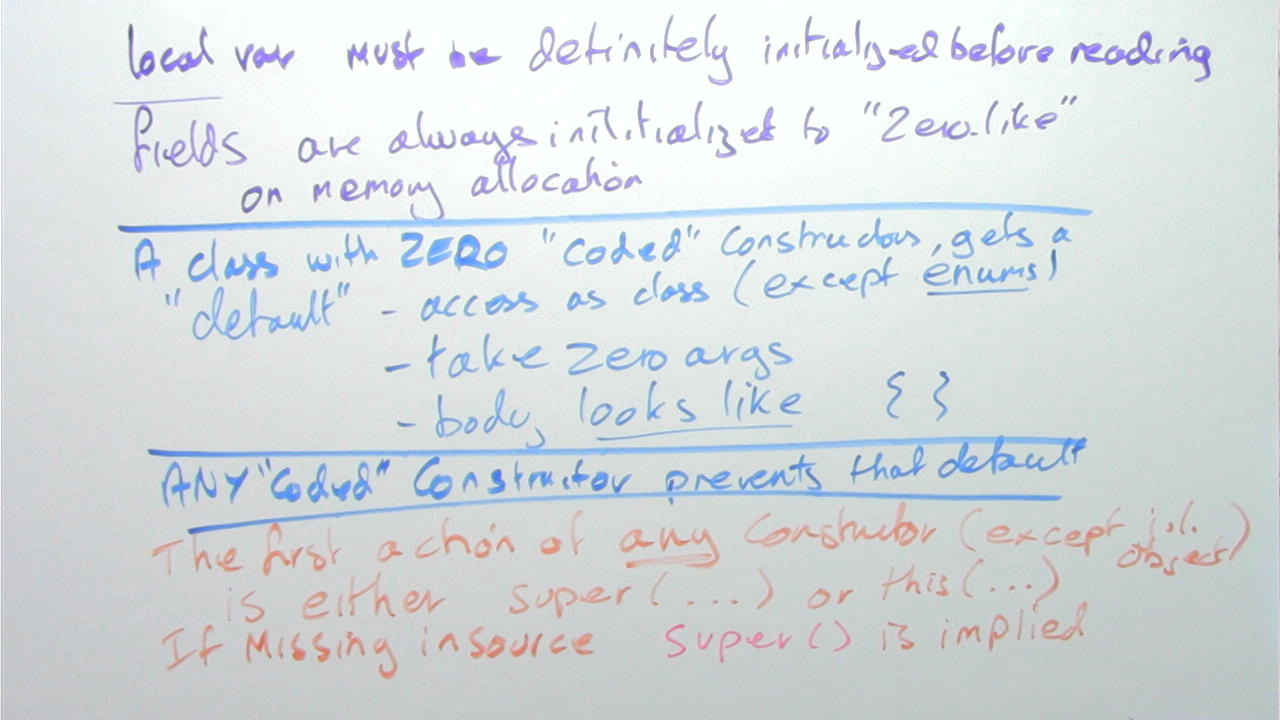 local var must be definitely initialized before reading
fields are always initilitialized to "Zero.like"
on memory allocation
A class with ZERO "coded" constructors, gets a
"default" - access as class (except enums)
- take zero args
- body, looks like { }
ANY "coded" Constructor prevents that default
The first action of any constructor (except j.l.
object)
is either super(...) or this(...)
If Missing in source super() is implied